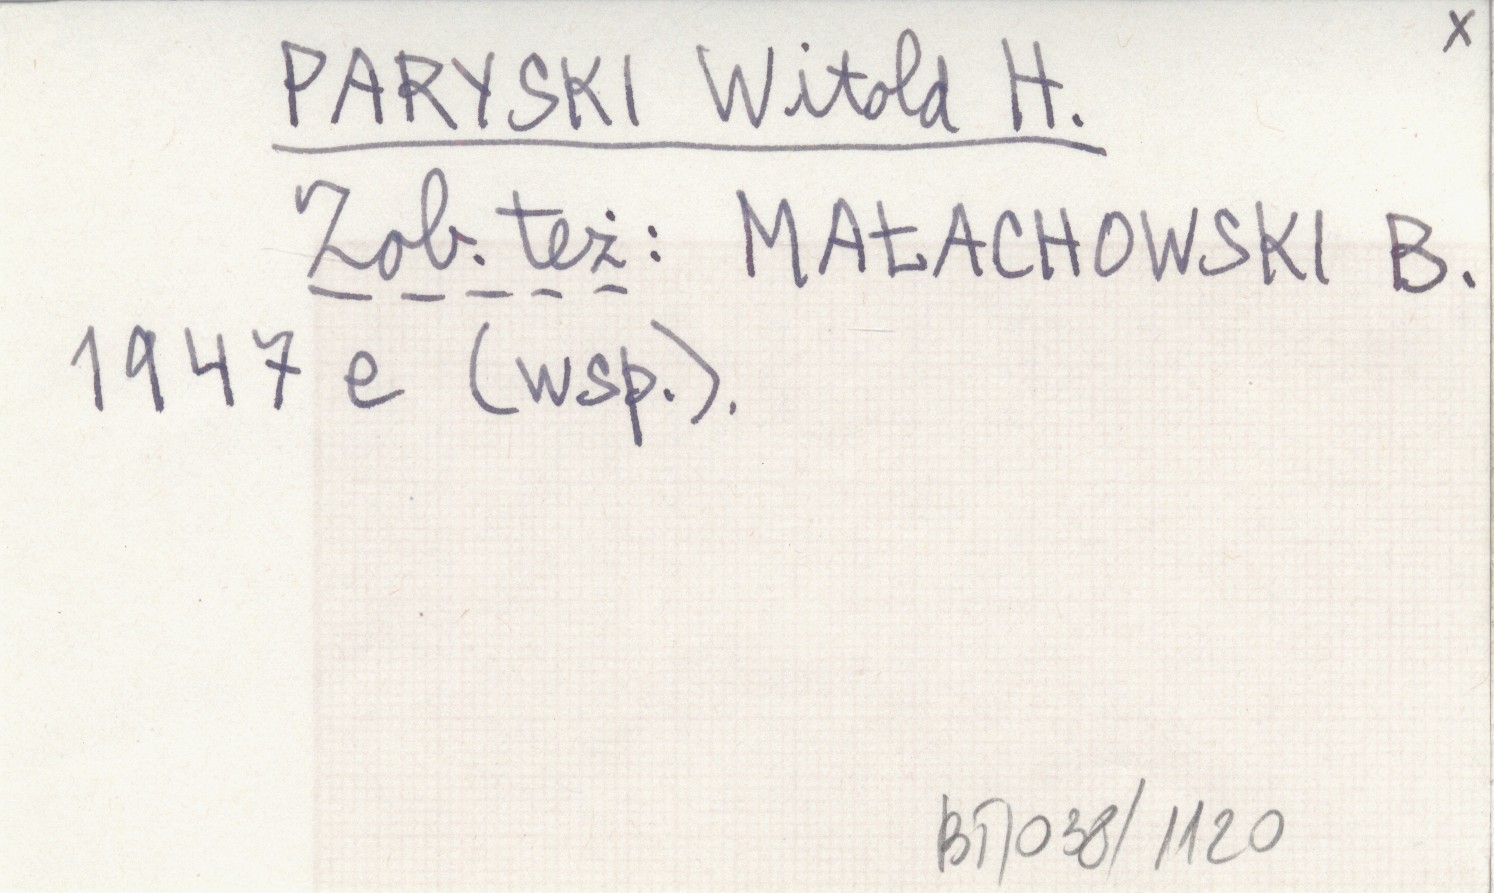 x
PARYSKI Witold H.
Zob. też: MAŁACHOWSKI B.
1947 e (wsp.).
BT/038/1120